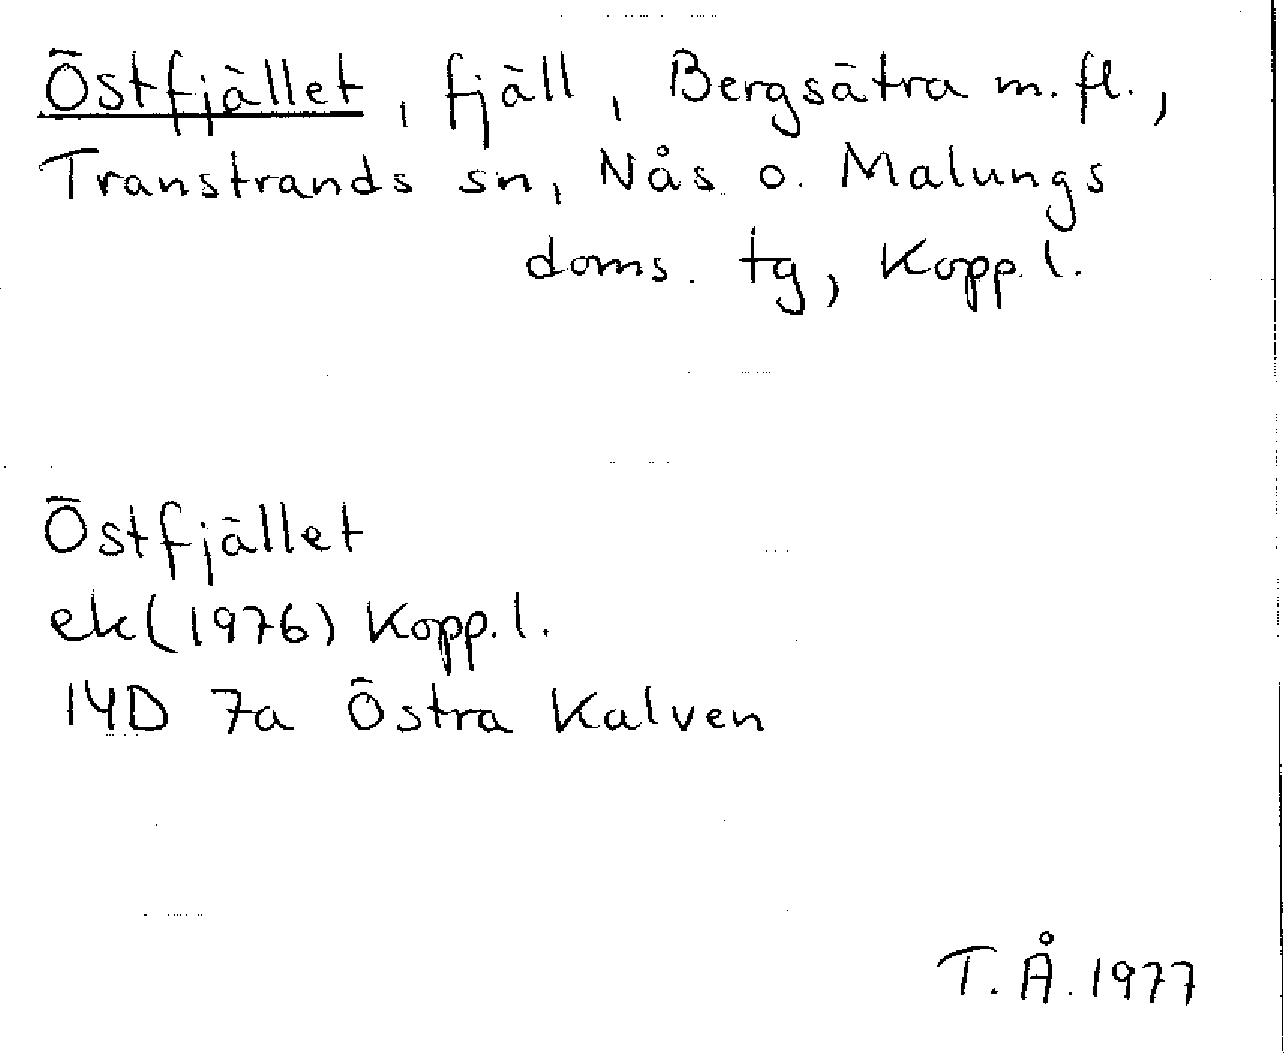 Östfjället, fjäll, Bergsätra m.fl.,
Transtrands sn, Nås o. Malungs
doms. tg, Kopp.l.
Östfjället
ek(1976) Kopp.l.
14D 7a Östra Kalven
T.Å.1977